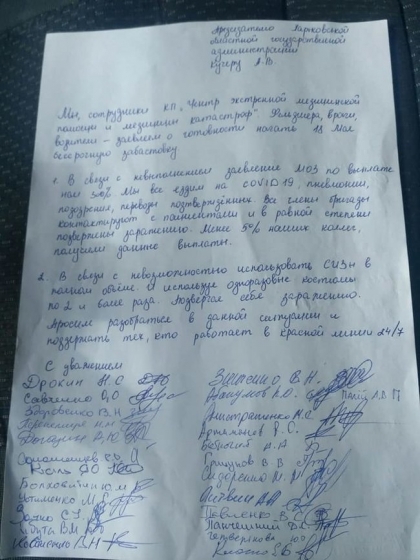 Председателю Харьковской
областной государственной
администрации
Кучеру А.В.
Мы, сотрудники КП "Центр экстренной медицинской
помощи и медицины катастроф". Фельдшера, врачи,
водители – заявляем о готовности начать 11 Мая
бессрочную забастовку
1. В связи с невыполнением заявления МОЗ по выплате
нам 300% Мы все ездим на COVID19, пневмонии,
подозрения, переводы подтверждённых Все члены бригады
контактируют с пациентами и в равной степени
подвержены заражению. Менее 5% наших коллег,
получили данные выплаты.
2. В связи с невозможностью использовать СИЗн в
полном объёме. И используя одноразовые костюмы
по 2 и более раза. Подвергая себя заражению.
Просим разобраться в данной ситуации и
поддержать тех, кто работает в красной линии 24/7
С уважением
Дрокин Н.С
Савченко О,О
В.Н
Ю.М
Устименко М.
В.М
Коваленко В.Н
В.Н.
А.О.
М.С
Р.С.
А.А
Грищук В.В
Сидоренко
Павленко В.С